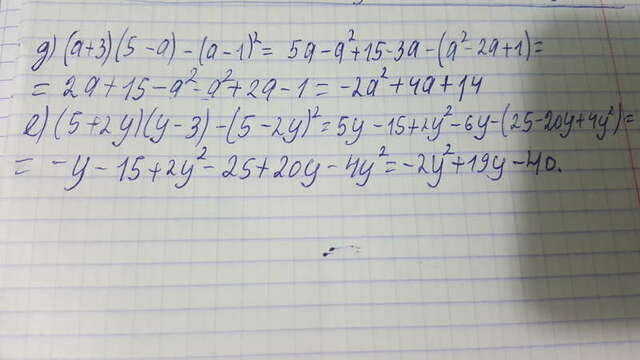 д) (a+3)(5-a)-(a-1)² = 5a-a²+15-3a-(a²-2a+1)=
= 2a+15-a²-a²+2a-1 = -2a²+4a+14
е) (5+2y)(y-3)-(5-2y)² = 5y-15+2y²-6y-(25-20y+4y²)=
= -y-15+2y²-25+20y-4y² = -2y²+19y-40.